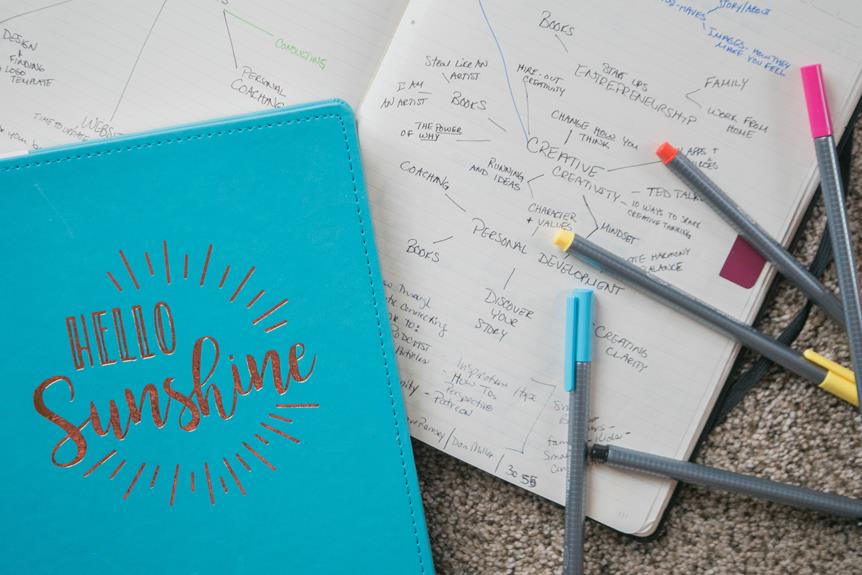 DESIGN
FINDING
LOGO
TEMPLATE
CONDUCTING
PERSONAL
COACHING
HELLO
Sunshine
STORY/ABOUT
IMAGES - HOW THEY
MAKE YOU FEEL
BOOKS
STEAL LIKE AN
ARTIST
I AM
AN ARTIST
BOOKS
HIRE-OUT
CREATIVITY
START UPS
ENTREPRENEURSHIP
FAMILY
WORK FROM
HOME
THE POWER
OF WHY
CHANGE HOW YOU
THINK
CREATIVE
CREATIVITY
APPS +
RUNNING
AND IDEAS
TED TALKS
10 WAYS TO SPARK
CREATIVE THINKING
COACHING
CHARACTER
+ VALUES
MINDSET
HARMONY
BALANCE
PERSONAL DEVELOPMENT
BOOKS
DISCOVER
YOUR
STORY
CREATING
CLARITY
Through
Connecting
TO:
Podcast
Articles
Inspiration
- How Tos
Perspective
- Patreon
Ramsey / Dan Miller /
30